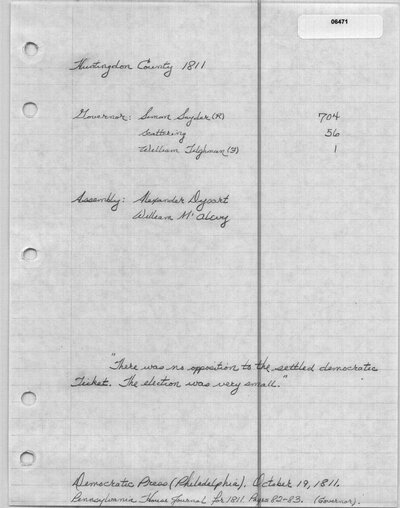 06471
Huntingdon County 1811
Governor: Simon Snyder (R) 704
Scattering 56
William Tilghman (F) 1
Assembly: Alexander Dysart
William McAlevy
"There was no opposition to the settled democratic
Ticket. The election was very small."
Democratic Press (Philadelphia). October 19, 1811.
Pennsylvania House Journal for 1811. Pages 82-83. (Governor).